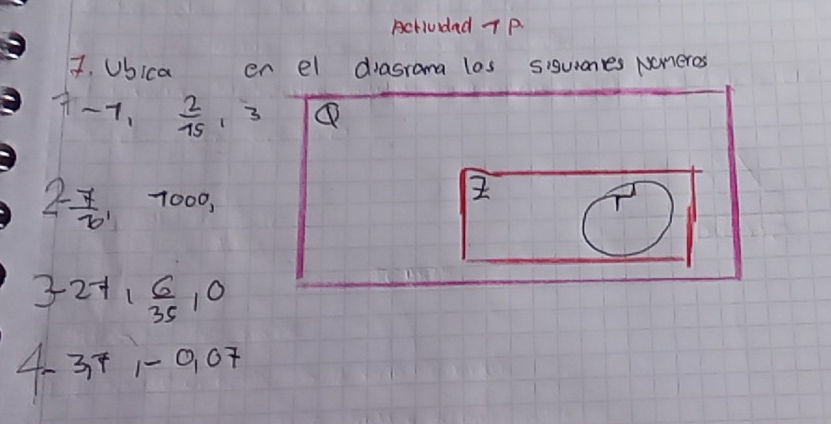 Actividad 1 P
1. Ubica en el diagrama los siguientes numeros
1-1, 2/15, 3
Q
Z
2-7/20, 1000,
3-21, 6/35, 0
4-3,7, -0,07